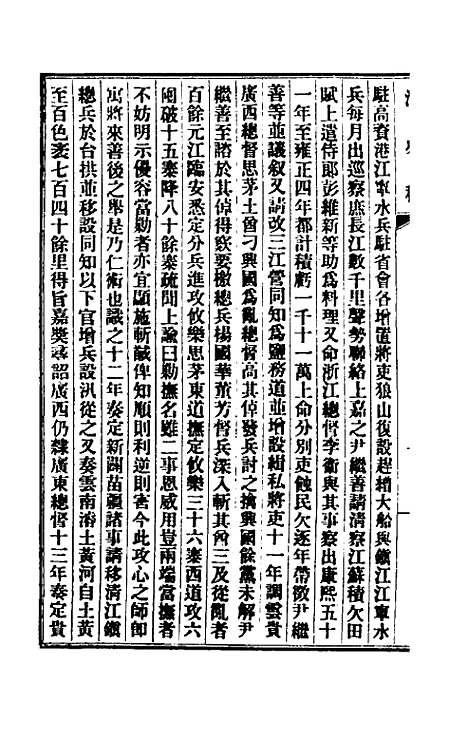 清史稿
駐高資港江寧水兵駐省會各增置將吏狼山復設趕繒大船與鎮江江寧水
兵每月出巡察庶長江數千里聲勢聯絡上嘉之尹繼善請清察江蘇積欠田
賦上遣侍郎彭維新等助爲料理又命浙江總督李衞與其事察出康熙五十
一年至雍正四年都計積虧一千十一萬上命分別吏蝕民欠逐年帶徵尹繼
善等並議敘又請改三江營同知爲鹽務道並增設緝私將吏十一年調雲貴
廣西總督思茅土酋刁興國爲亂總督高其倬發兵討之擒興國餘黨未解尹
繼善至諮於其倬得窾要檄總兵楊國華董芳督兵深入斬其酋三及從亂者
百餘元江臨安悉定分兵進攻攸樂思茅東道撫定攸樂三十六寨西道攻六
囤破十五寨降八十餘寨疏聞上諭曰剿撫名雖二事恩威用豈兩端當撫者
不妨明示優容當剿者亦宜顯施斬馘俾知順則利逆則害今此攻心之師即
寓將來善後之舉是乃仁術也識之十二年奏定新闢苗疆諸事請移清江鎮
總兵於台拱並移設同知以下官增兵設汛從之又奏雲南濬土黃河自土黃
至百色袤七百四十餘里得旨嘉獎尋詔廣西仍隸廣東總督十三年奏定貴